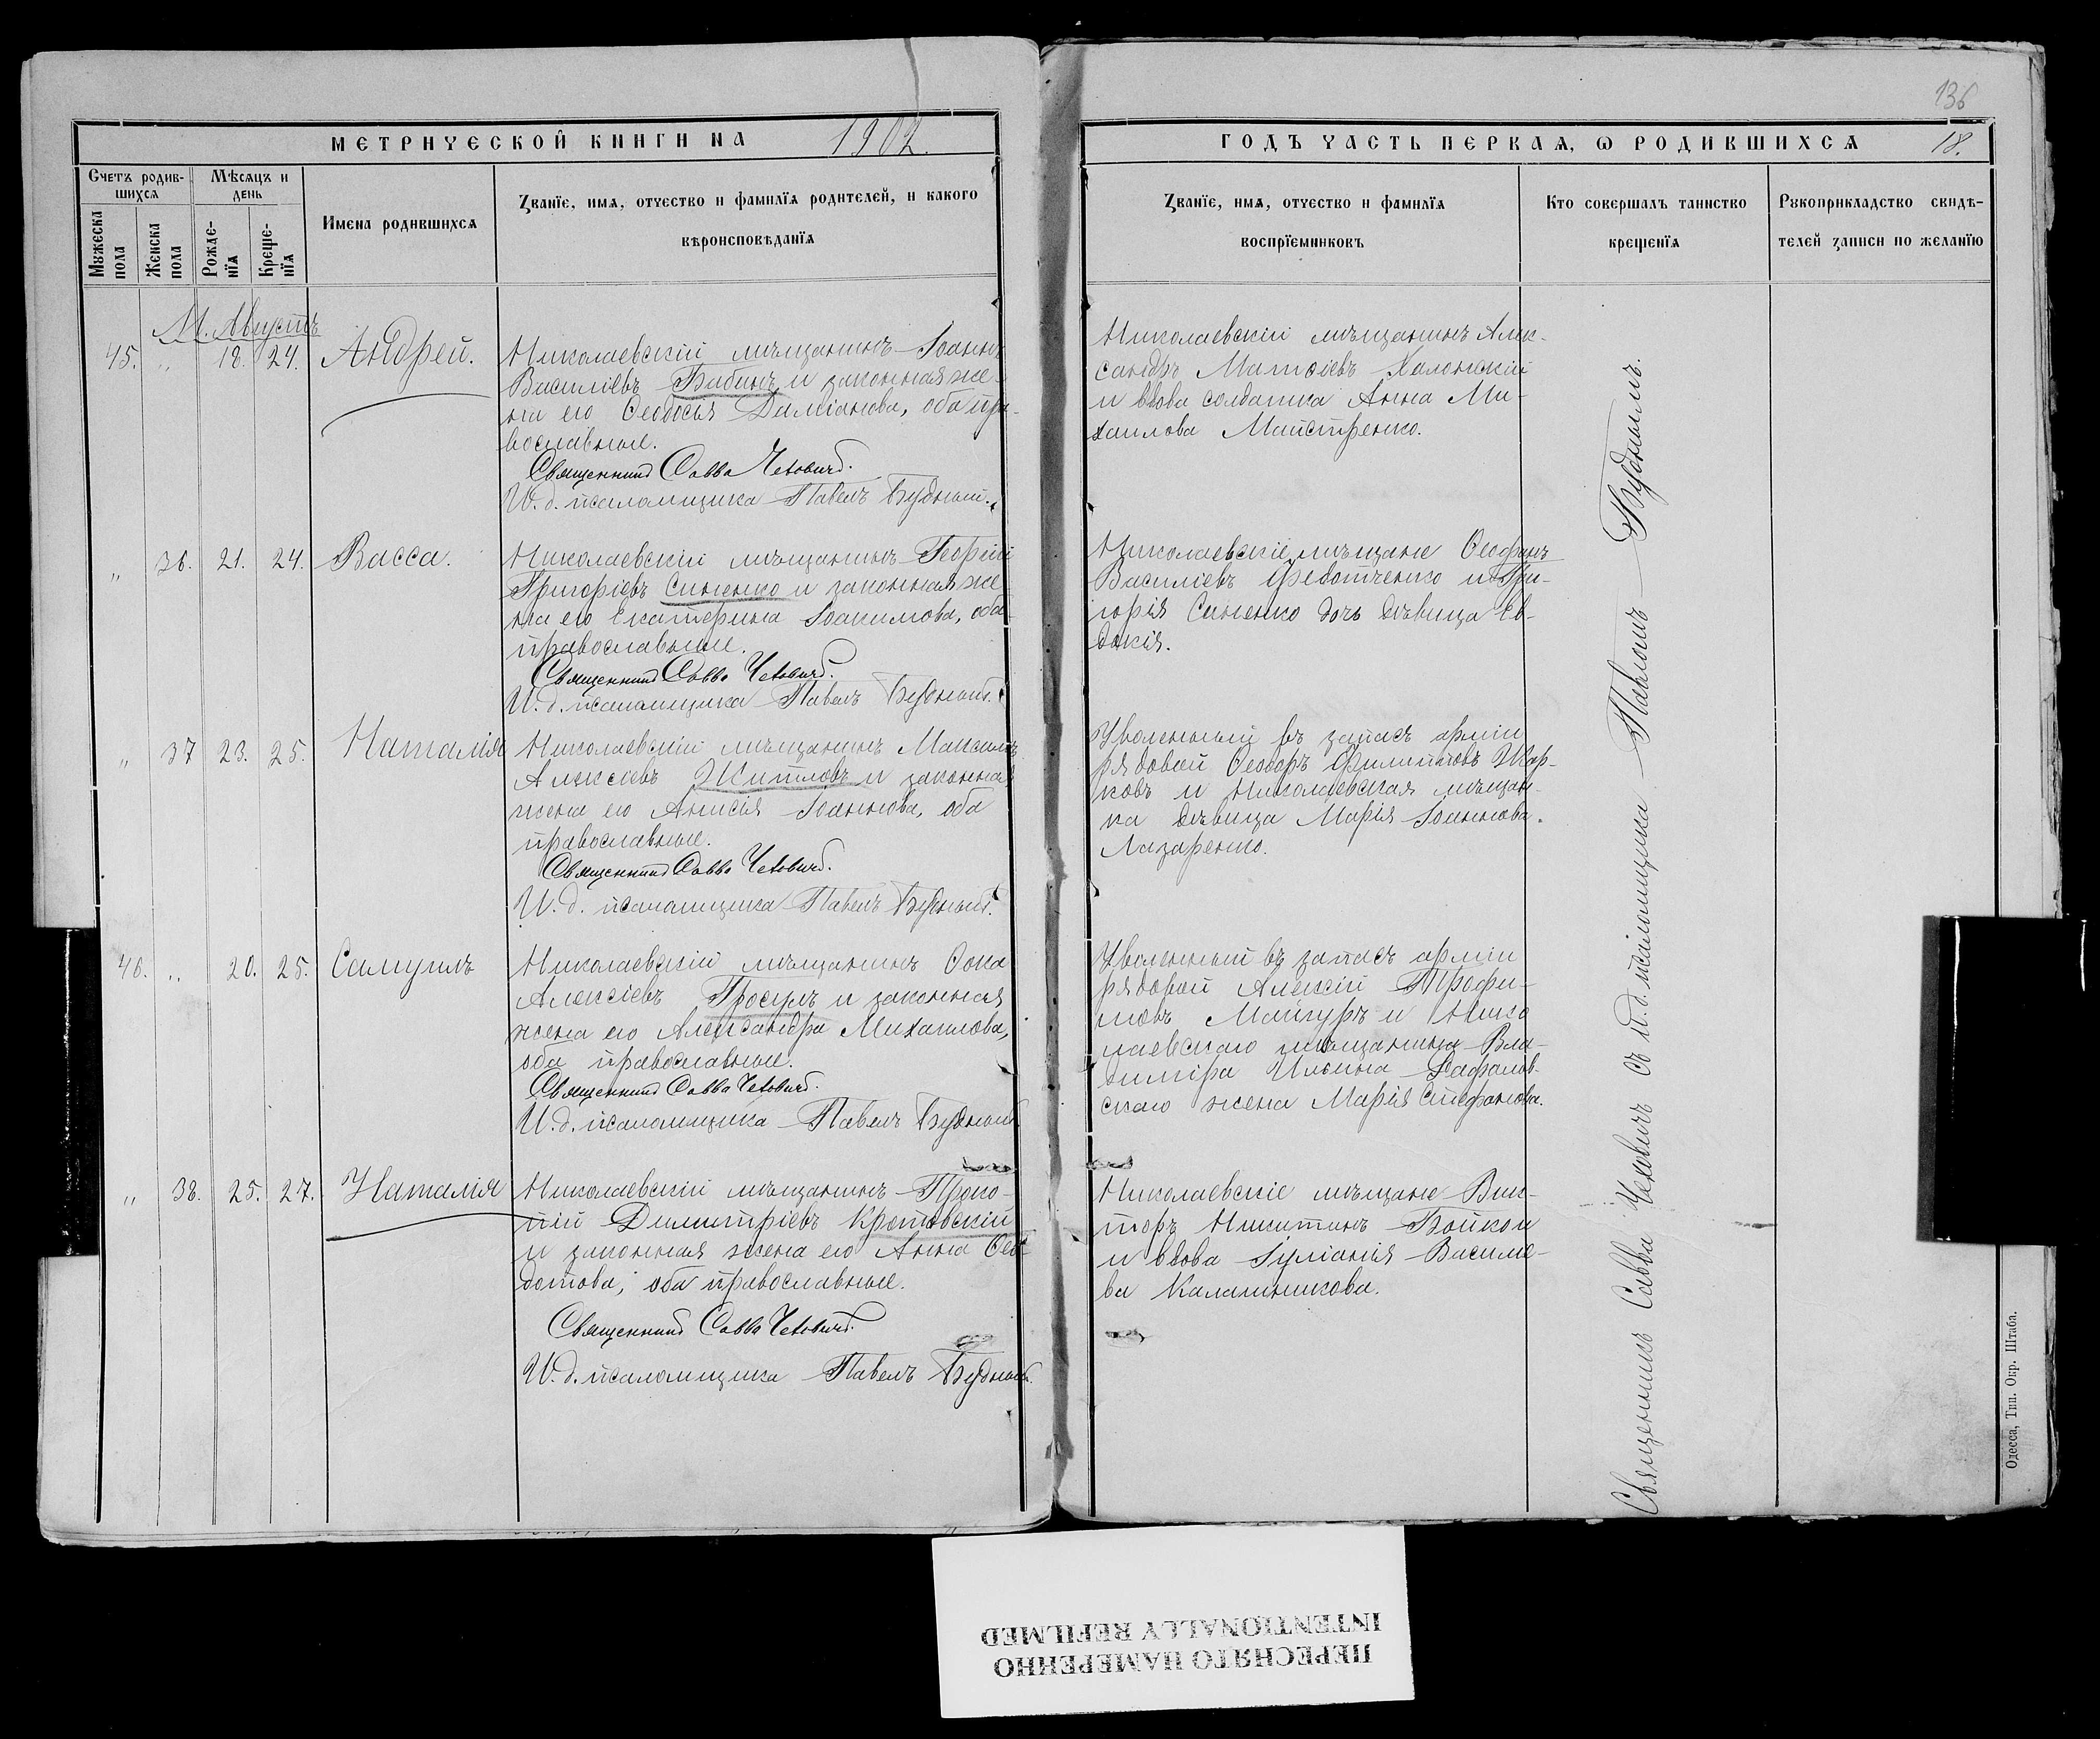 136
МЕТРИЧЕСКОЙ КНИГИ НА 1902.
ГОДЪ ЧАСТЬ ПЕРВАЯ, Ѡ РОДИВШИХСЯ 18.
Счетъ родив-
шихся
Мѣсяцъ и
день
Мужеска
пола
Женска
пола
Рожде-
нїя
Креще-
нїя
Имена родившихся
Званїе, имя, отчество и фамилїя родителей, и какого
вѣроисповѣданїя
Званїе, имя, отчество и фамилїя
воспрїемниковъ
Кто совершалъ таинство
крещенїя
Рукоприкладство свидѣ-
телей записи по желанїю
М. Августъ
45. „ 18. 24. Андрей.
Николаевскій мѣщанинъ Іоаннъ
Василіевъ Бабинъ и законная же-
на его Ѳеодосія Даміанова, оба пра-
вославные.
Священникъ Савва Чеховичъ.
И. д. псаломщика Павелъ Будный.
Николаевскій мѣщанинъ Алек-
сандръ Матѳіевъ Халонскій
и вдова солдатка Анна Ми-
хаилова Майстренко.
„ 36. 21. 24. Васса.
Николаевскій мѣщанинъ Георгій
Григоріевъ Синенко и законная же-
на его Екатерина Іоакимова, оба
православные.
Священникъ Савва Чеховичъ.
И. д. псаломщика Павелъ Будный.
Николаевскіе мѣщане Ѳеофанъ
Василіевъ Федотченко и Гри-
горія Синенко дочь дѣвица Ев-
докія.
„ 37 23. 25. Наталія
Николаевскій мѣщанинъ Максимъ
Алексіевъ Житловъ и законная
жена его Анисія Іоаннова, оба
православные.
Священникъ Савва Чеховичъ.
И. д. псаломщика Павелъ Будный.
Уволенный въ запасъ арміи
рядовой Ѳеодоръ Филипповъ Жар-
ковъ и Николаевская мѣщан-
ка дѣвица Марія Іоаннова
Лазаренко.
46. „ 20. 25. Самуилъ
Николаевскій мѣщанинъ Ѳока
Алексіевъ Просулъ и законная
жена его Александра Михаилова,
оба православные.
Священникъ Савва Чеховичъ.
И. д. псаломщика Павелъ Будный
Уволенный въ запасъ арміи
рядовой Алексій Трофи-
мовъ Майгуръ и Нико
лаевскаго мѣщанина Вла-
диміра Ильина Рафалов-
скаго жена Марія Стефанова.
„ 38. 25. 27. Наталія
Николаевскій мѣщанинъ Проко-
пій Димитріевъ Кротовскій
и законная жена его Анна Ѳео-
дотова, оба православные.
Священникъ Савва Чеховичъ.
И. д. псаломщика Павелъ Будный.
Николаевскіе мѣщане Вик-
торъ Никитинъ Бойкои
и вдова Іуліанія Василие-
ва Калашникова.
Священникъ Савва Чеховичъ съ и. д. псаломщика Павломъ Буднымъ.
Одесса, Тип. Окр. Штаба.
ПЕРЕСНЯТО НАМЕРЕННО
INTENTIONALLY REFILMED